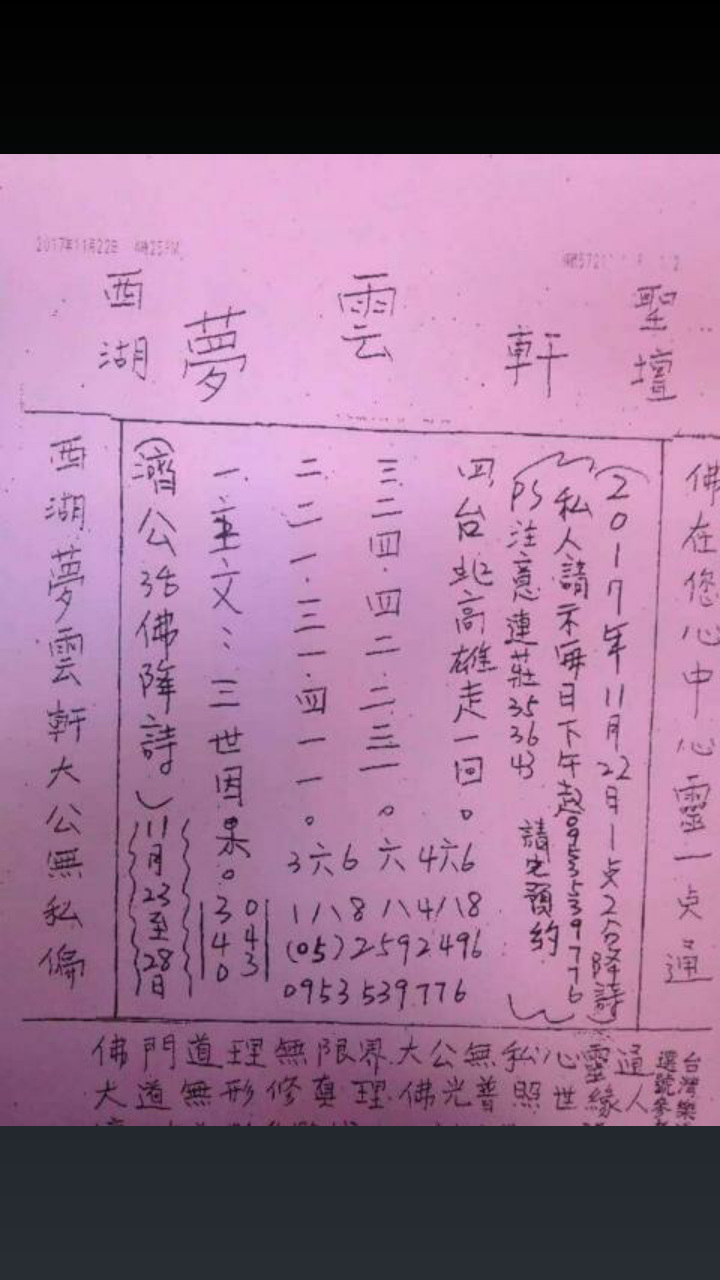 2017年11月22日
西湖 夢 雲 軒 聖壇
佛在您心中心靈一点通
(2017年11月22日1点2分降詩)
私人請示每日下午起0953539776
PS注意連莊35 36 43 請先預約
四台北高雄走一回。
三二四.四二.二三一。
二二一.三一.四一一。
一主文:三世因果。
3六6 六 4六6
1八8 八4八8
(05)2592496
0953 539776
340 043
(濟公活佛降詩)
11月23至28日
西湖夢雲軒大公無私偏
佛門道理無限界.大公無私心靈通
大道無形修真理.佛光普照世緣人
台灣樂
選號參